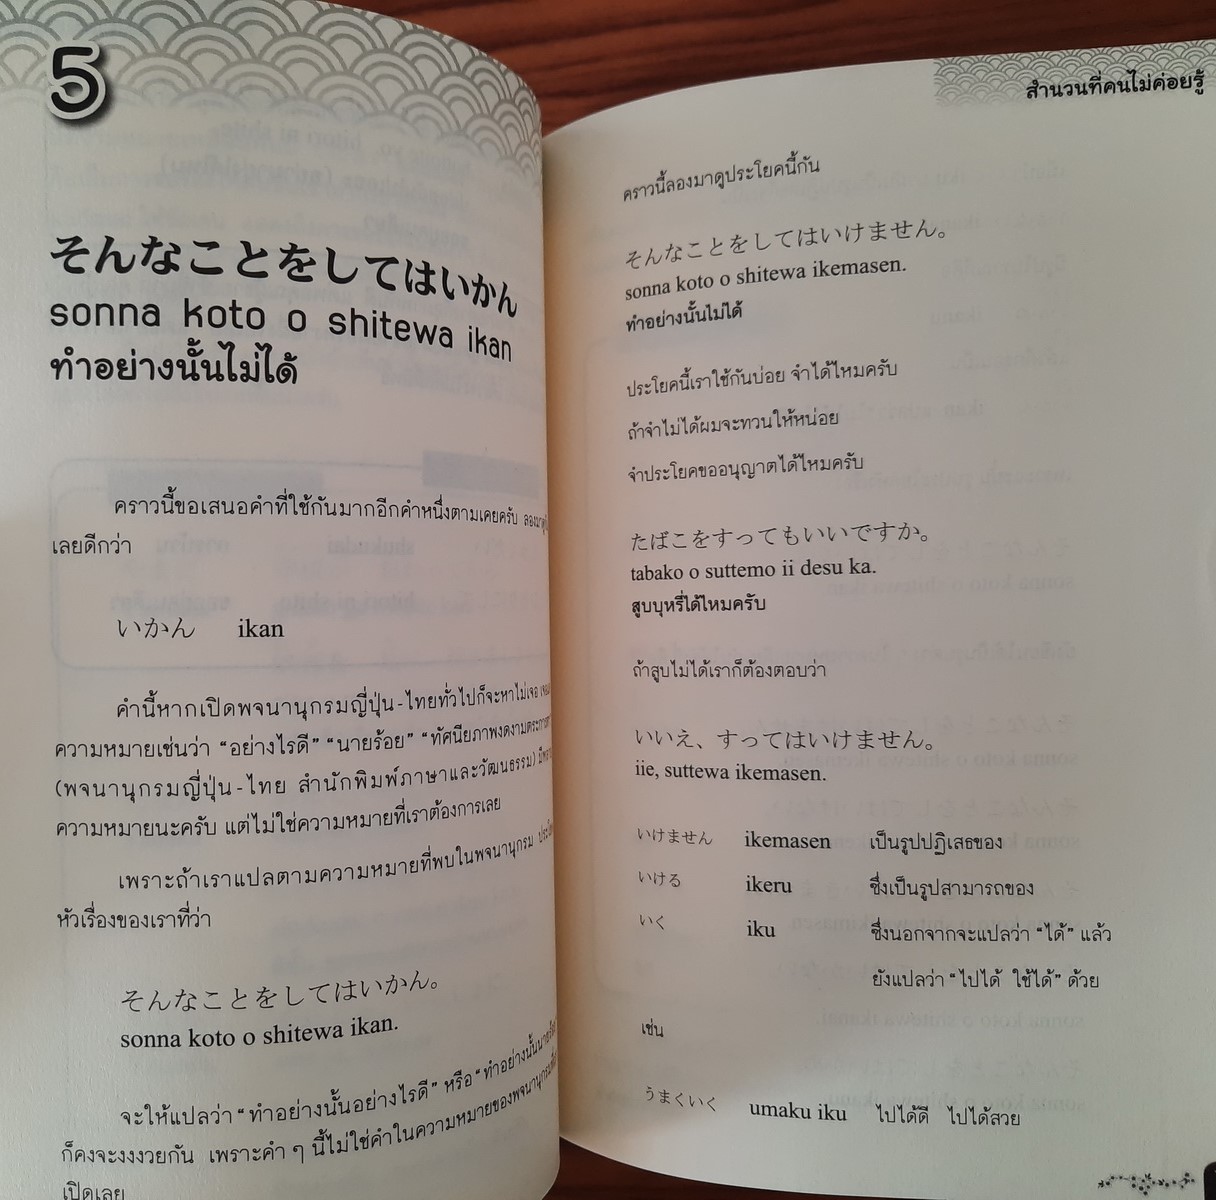 5
そんなことをしてはいかん
sonna koto o shitewa ikan
ทำอย่างนั้นไม่ได้
คราวนี้ขอเสนอคำที่ใช้กันมากอีกคำหนึ่งตามเคยครับ ลองมาดู
เลยดีกว่า
いかん ikan
คำนี้หากเปิดพจนานุกรมญี่ปุ่น-ไทยทั่วไปก็จะหาไม่เจอ
ความหมายเช่นว่า “อย่างไรดี” “นายร้อย” “ทัศนียภาพงดงามตระการตา
(พจนานุกรมญี่ปุ่น-ไทย สำนักพิมพ์ภาษาและวัฒนธรรม)
ความหมายนะครับ แต่ไม่ใช่ความหมายที่เราต้องการเลย
เพราะถ้าเราแปลตามความหมายที่พบในพจนานุกรม
หัวเรื่องของเราที่ว่า
そんなことをしてはいかん。
sonna koto o shitewa ikan.
จะให้แปลว่า “ทำอย่างนั้นอย่างไรดี” หรือ “ทำอย่างนั้นนายร้อย
ก็คงจะงงงวยกัน เพราะคำ ๆ นี้ไม่ใช่คำในความหมายของพจนานุกรม
เปิดเลย
สำนวนที่คนไม่ค่อยรู้
คราวนี้ลองมาดูประโยคนี้กัน
そんなことをしてはいけません。
sonna koto o shitewa ikemasen.
ทำอย่างนั้นไม่ได้
ประโยคนี้เราใช้กันบ่อย จำได้ไหมครับ
ถ้าจำไม่ได้ผมจะทวนให้หน่อย
จำประโยคขออนุญาตได้ไหมครับ
たばこをすってもいいですか。
tabako o suttemo ii desu ka.
สูบบุหรี่ได้ไหมครับ
ถ้าสูบไม่ได้เราก็ต้องตอบว่า
いいえ、すってはいけません。
iie, suttewa ikemasen.
いけません ikemasen เป็นรูปปฏิเสธของ
いける ikeru ซึ่งเป็นรูปสามารถของ
いく iku ซึ่งนอกจากจะแปลว่า “ได้” แล้ว
ยังแปลว่า “ไปได้ ใช้ได้” ด้วย
เช่น
うまくいく umaku iku ไปได้ดี ไปได้สวย